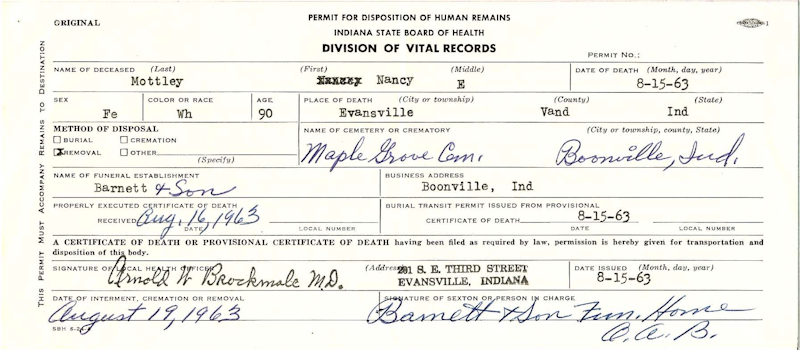 ORIGINAL
PERMIT FOR DISPOSITION OF HUMAN REMAINS
INDIANA STATE BOARD OF HEALTH
DIVISION OF VITAL RECORDS
PERMIT NO.:
THIS PERMIT MUST ACCOMPANY REMAINS TO DESTINATION
NAME OF DECEASED (Last) (First) (Middle) DATE OF DEATH (Month, day, year)
Mottley Nancy E 8-15-63
SEX COLOR OR RACE AGE PLACE OF DEATH (City or township) (County) (State)
Fe Wh 90 Evansville Vand Ind
METHOD OF DISPOSAL NAME OF CEMETERY OR CREMATORY (City or township, county, State)
BURIAL CREMATION
REMOVAL OTHER Maple Grove Cem. Boonville, Ind.
(Specify)
NAME OF FUNERAL ESTABLISHMENT BUSINESS ADDRESS
Barnett & Son Boonville, Ind
PROPERLY EXECUTED CERTIFICATE OF DEATH BURIAL TRANSIT PERMIT ISSUED FROM PROVISIONAL
RECEIVED Aug. 16, 1963 CERTIFICATE OF DEATH 8-15-63
DATE LOCAL NUMBER DATE LOCAL NUMBER
A CERTIFICATE OF DEATH OR PROVISIONAL CERTIFICATE OF DEATH having been filed as required by law, permission is hereby given for transportation and
disposition of this body.
SIGNATURE OF LOCAL HEALTH OFFICER (Address) 201 S. E. THIRD STREET DATE ISSUED (Month, day, year)
Arnold W Brockmole M.D. EVANSVILLE, INDIANA 8-15-63
DATE OF INTERMENT, CREMATION OR REMOVAL SIGNATURE OF SEXTON OR PERSON IN CHARGE
August 19, 1963 Barnett & Son Fun. Home
SBH O.A.B.